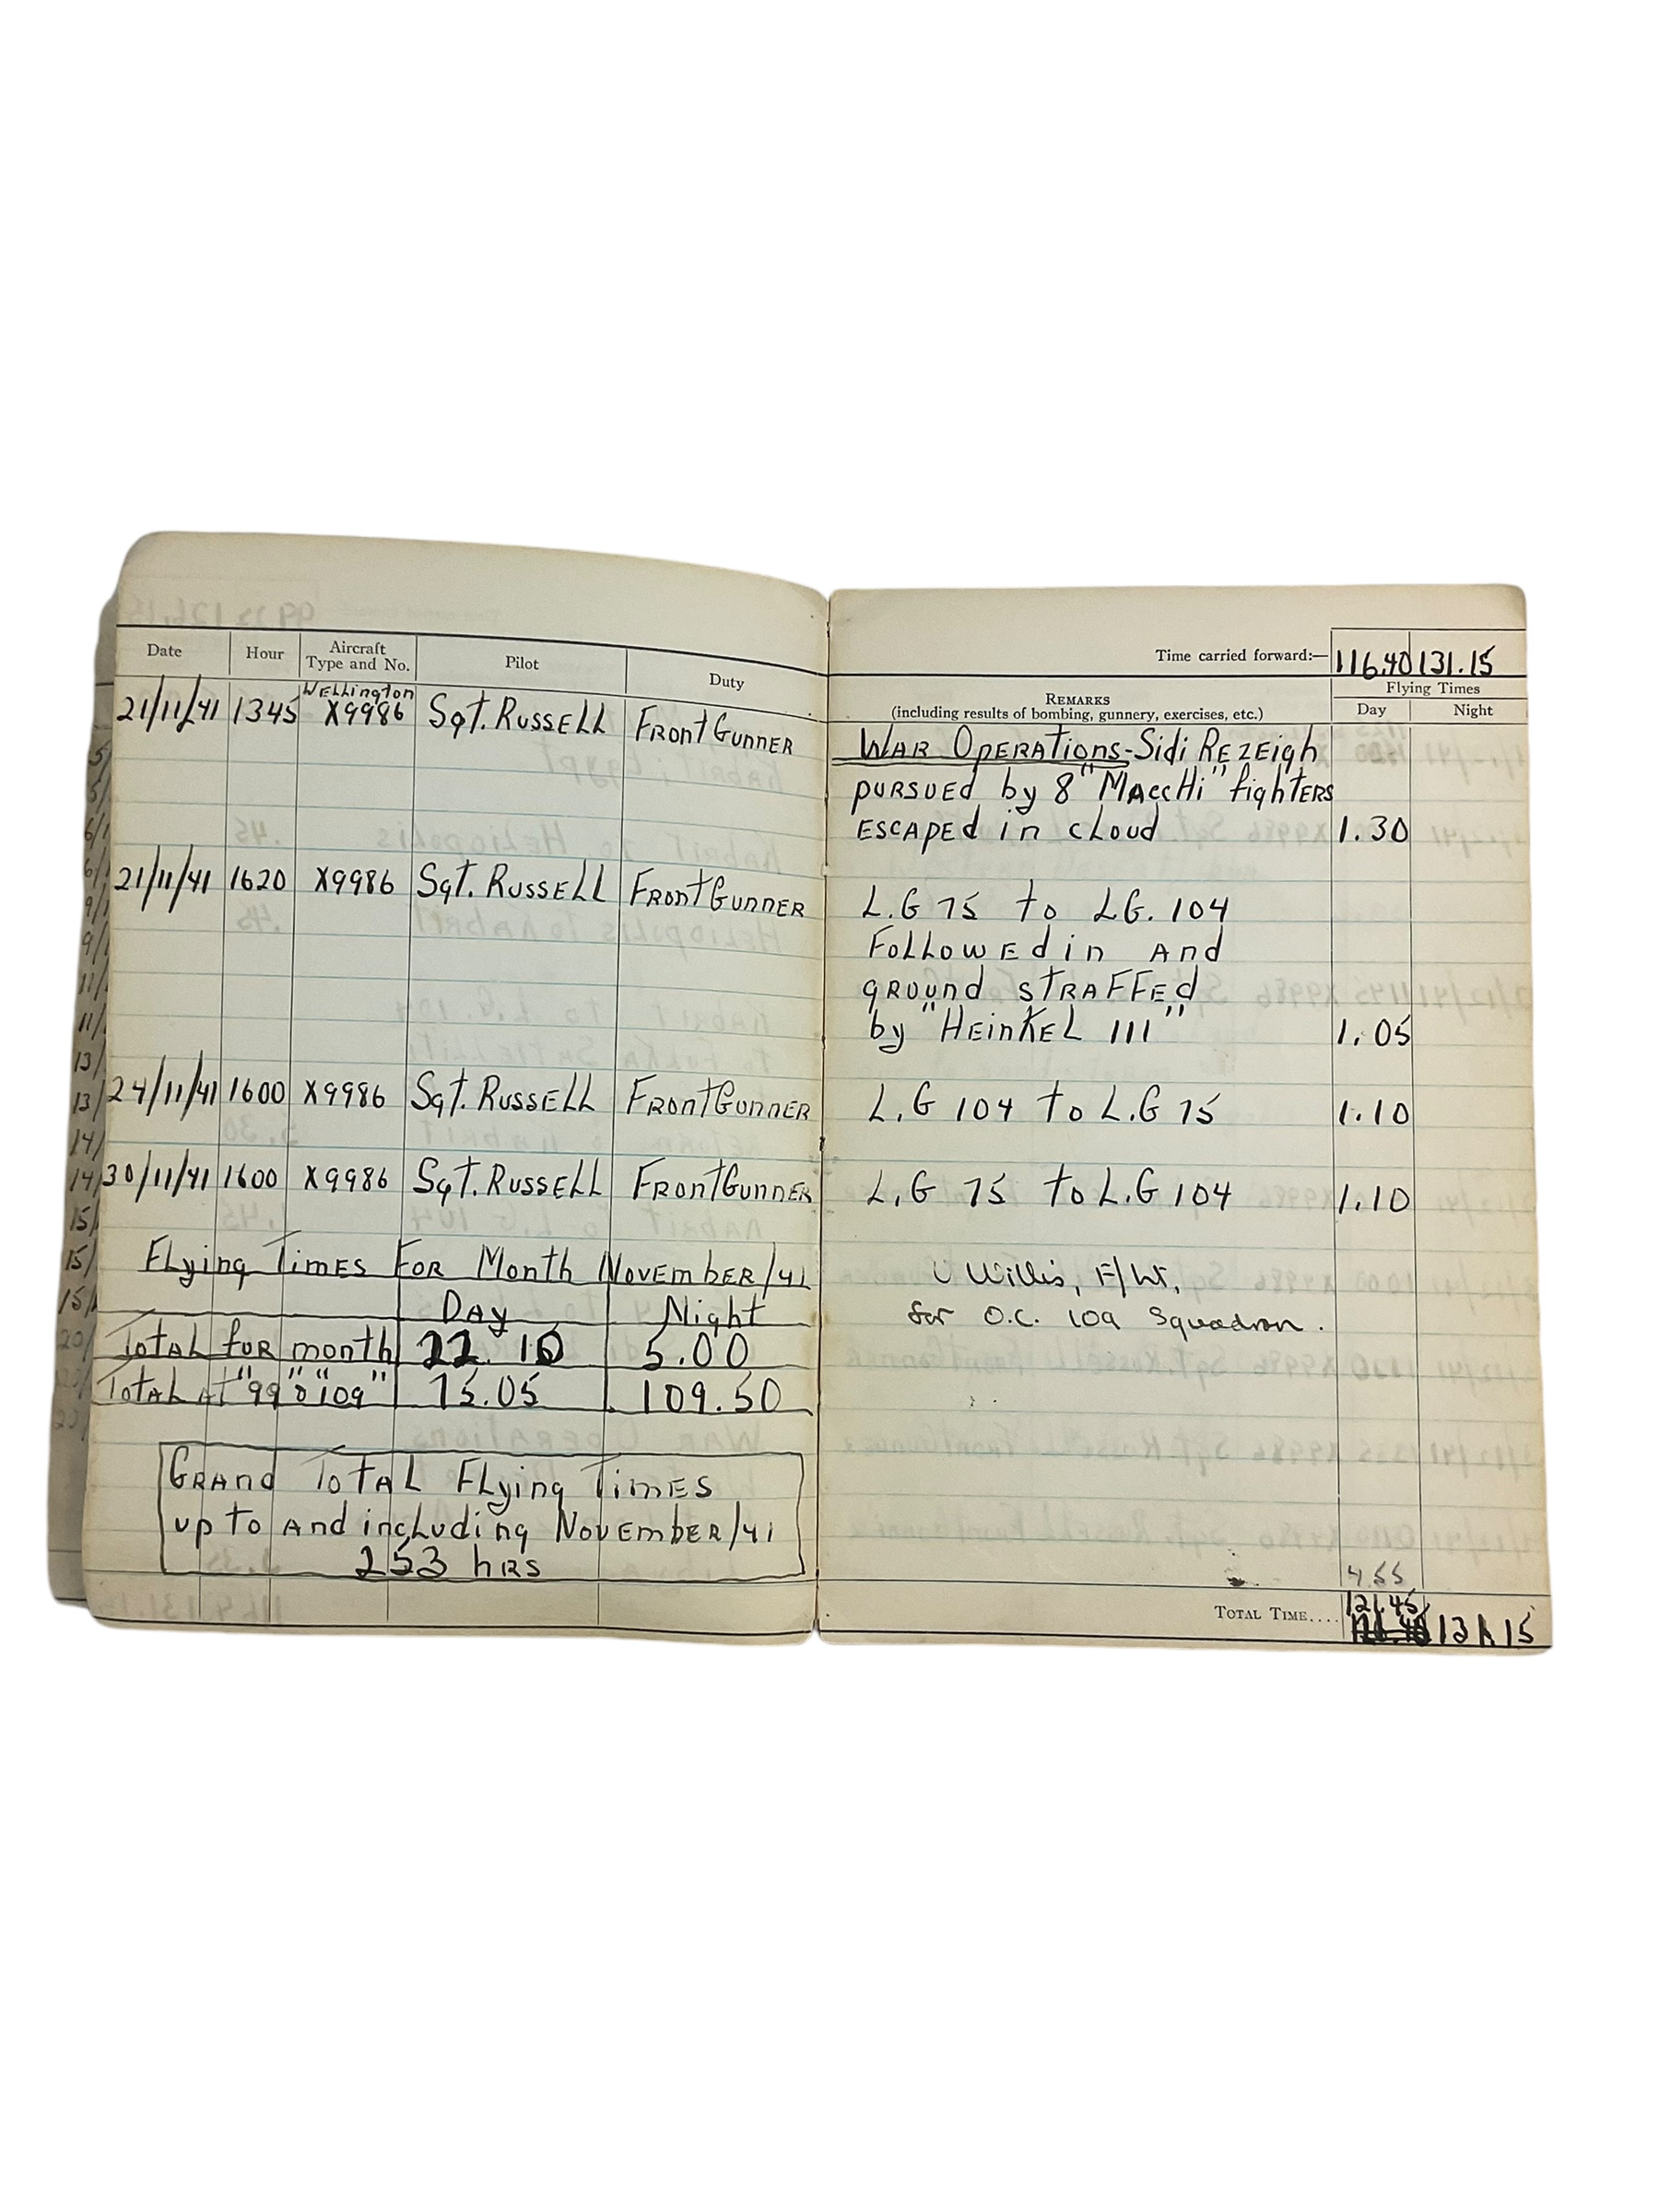 Date Hour Aircraft Type and No. Pilot Duty
21/11/41 1345 Wellington X9986 Sgt. Russell Front Gunner
21/11/41 1620 X9986 Sgt. Russell Front Gunner
24/11/41 1600 X9986 Sgt. Russell Front Gunner
30/11/41 1600 X9986 Sgt. Russell Front Gunner
Flying Times For Month November/41
Day Night
Total for month 22.10 5.00
Total at "99" & "109" 75.05 109.50
Grand Total Flying Times
up to and including November/41
253 hrs
Time carried forward:— 116.40 131.15
Remarks
(including results of bombing, gunnery, exercises, etc.)
Flying Times
Day Night
War Operations - Sidi Rezeigh
pursued by 8 "Macchi" fighters
escaped in cloud 1.30
L.G 75 to LG. 104
Followed in and
ground straffed
by "Heinkel 111" 1.05
L.G 104 to L.G 75 1.10
L.G 75 to L.G 104 1.10
Willis, F/Lt.
for O.C. 109 Squadron.
4.55
121.45
Total Time.... 131.15